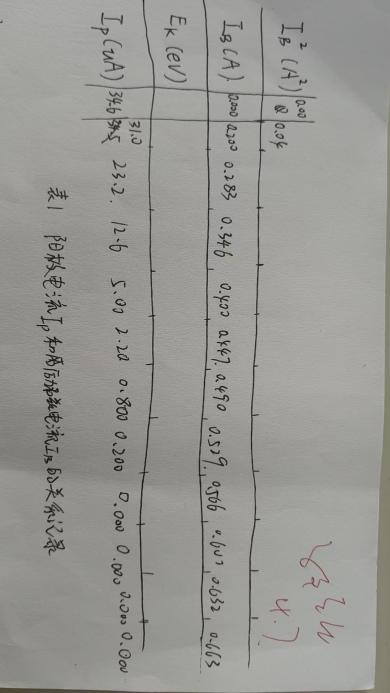 I_B² (A²) 0.00 0.04
I_B (A) 0.000 0.200 0.283 0.346 0.400 0.447 0.490 0.529 0.566 0.600 0.632 0.663
E_K (eV)
I_P (uA) 34.6 31.0 23.2 12.6 5.00 2.20 0.800 0.200 0.000 0.000 0.000 0.000
表1 阳极电流I_P和励磁电流I_B的关系记录
4.7